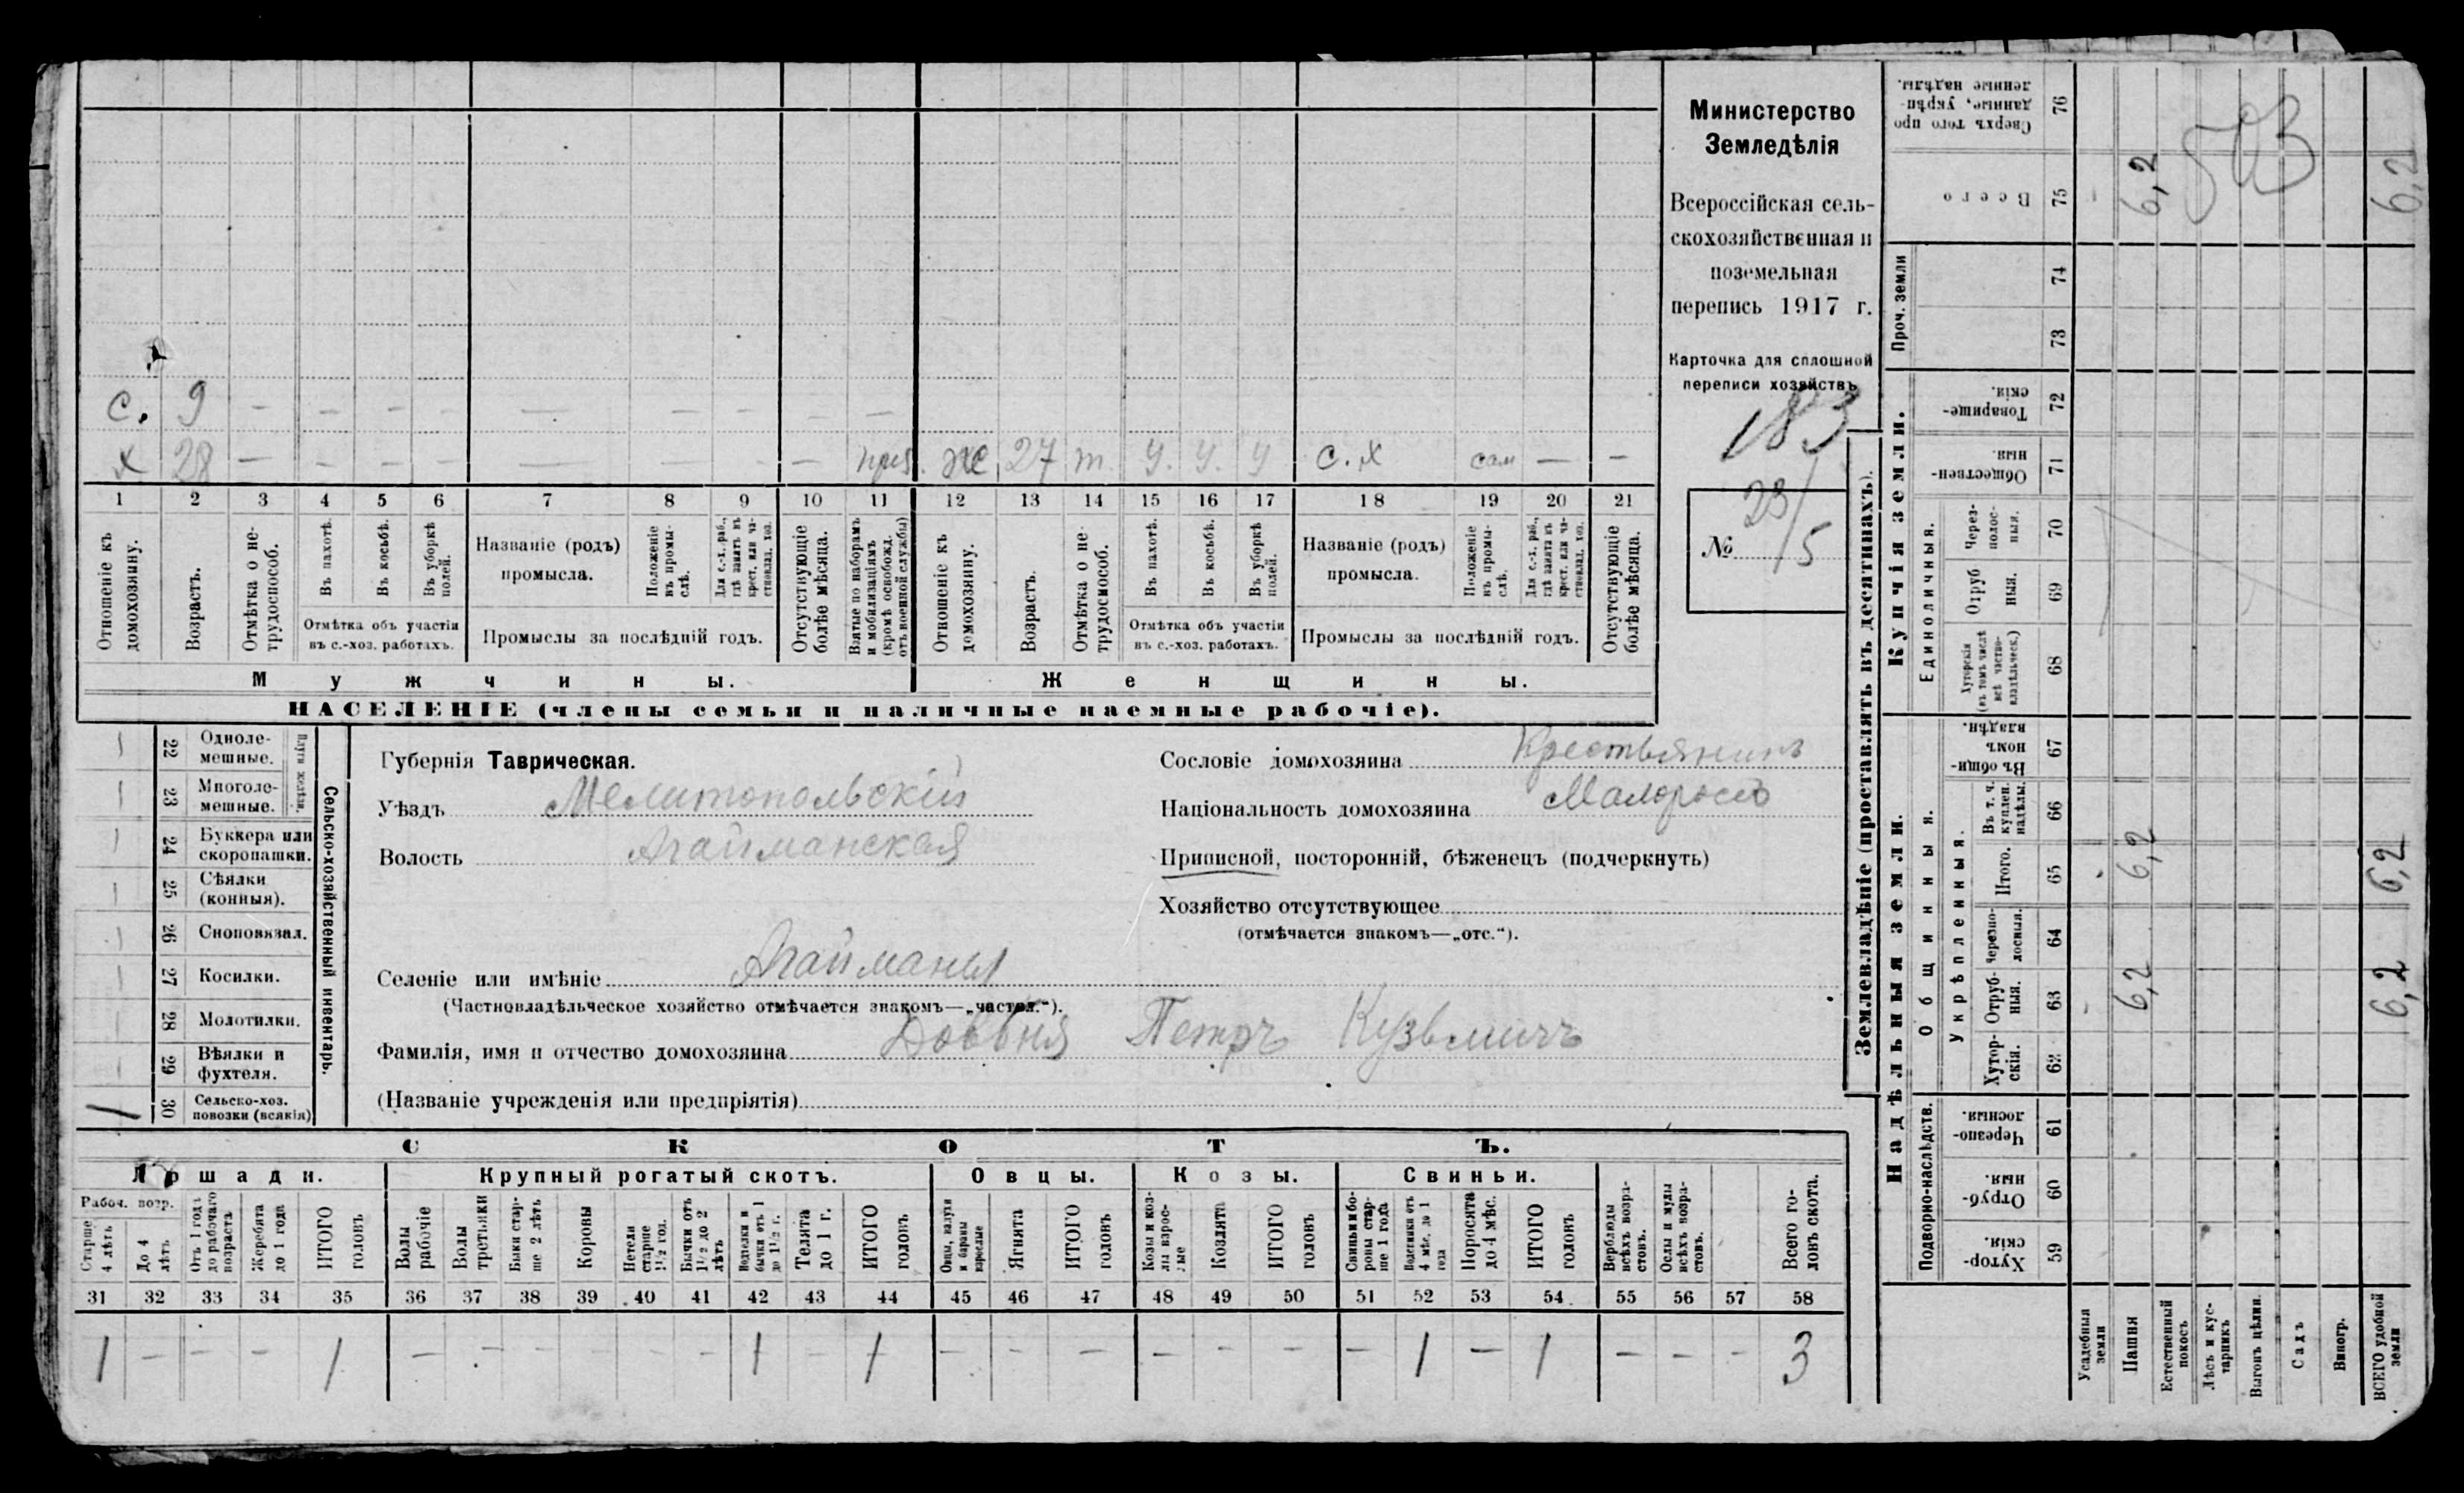 Министерство
Земледѣлія
Всероссійская сель-
скохозяйственная и
поземельная
перепись 1917 г.
Карточка для сплошной
переписи хозяйствъ
183
№ 23/5
с. 9 — — — — — — — — —
х 28 — — — — — — — — приз. же 27 т. у. у. у с. х сам — —
1 2 3 4 5 6 7 8 9 10 11 12 13 14 15 16 17 18 19 20 21
Отношеніе къ домохозяину.
Возрастъ.
Отмѣтка о не-трудоспособ.
Въ пахотѣ.
Въ косьбѣ.
Въ уборкѣ полей.
Отмѣтка объ участіи
въ с.-хоз. работахъ.
Названіе (родъ)
промысла.
Положеніе въ промы-слѣ.
Для с.-х. раб., гдѣ занятъ въ крест. или ча-стновлад. хоз.
Промыслы за послѣдній годъ.
Отсутствующіе болѣе мѣсяца.
Взятые по наборамъ и мобилизаціямъ (кромѣ освобожд. отъ военной службы)
Отношеніе къ домохозяину.
Возрастъ.
Отмѣтка о не-трудоспособ.
Въ пахотѣ.
Въ косьбѣ.
Въ уборкѣ полей.
Отмѣтка объ участіи
въ с.-хоз. работахъ.
Названіе (родъ)
промысла.
Положеніе въ промы-слѣ.
Для с.-х. раб., гдѣ занята въ крест. или ча-стновлад. хоз.
Промыслы за послѣдній годъ.
Отсутствующіе болѣе мѣсяца.
Мужчины. Женщины.
НАСЕЛЕНІЕ (члены семьи и наличные наемные рабочіе).
Сельско-хозяйственный инвентарь.
Плуги желѣзн.
22 Одноле-
мешные.
23 Многоле-
мешные.
24 Буккера или
скоропашки.
25 Сѣялки
(конныя).
26 Сноповязал.
27 Косилки.
28 Молотилки.
29 Вѣялки и
фухтеля.
1 30 Сельско-хоз.
повозки (всякія)
Губернія Таврическая.
Уѣздъ Мелитопольскій
Волость Агайманская
Селеніе или имѣніе Агайманы
(Частновладѣльческое хозяйство отмѣчается знакомъ—„частвл.“).
Фамилія, имя и отчество домохозяина Довбня Петръ Кузьмичъ
(Названіе учрежденія или предпріятія)
Сословіе домохозяина Крестьянинъ
Національность домохозяина Малороссъ
Приписной, посторонній, бѣженецъ (подчеркнуть)
Хозяйство отсутствующее
(отмѣчается знакомъ—„отс.“).
СКОТЪ.
Лошади. Крупный рогатый скотъ. Овцы. Козы. Свиньи.
Рабоч. возр.
Старше 4 лѣтъ
До 4 лѣтъ
Отъ 1 года до рабочаго возраста
Жеребята до 1 года
ИТОГО головъ
Волы рабочіе
Волы третьяки
Быки стар-ше 2 лѣтъ
Коровы
Нетели старше 1½ год.
Бычки отъ 1½ до 2 лѣтъ
Подтелки и бычки отъ 1 до 1½ г.
Телята до 1 г.
ИТОГО головъ
Овцы, валухи и бараны взрослые
Ягнята
ИТОГО головъ
Козы и коз-лы взрос-лые
Козлята
ИТОГО головъ
Свиньи и бо-ровы стар-ше 1 года
Подсвинки отъ 4 мѣс. до 1 года
Поросята до 4 мѣс.
ИТОГО головъ
Верблюды всѣхъ возра-стовъ.
Ослы и мулы всѣхъ возра-стовъ.
Всего го-ловъ скота.
31 32 33 34 35 36 37 38 39 40 41 42 43 44 45 46 47 48 49 50 51 52 53 54 55 56 57 58
1 — — — 1 — — — — — — 1 — 1 — — — — — — — 1 — 1 — — — 3
Землевладѣніе (проставлять въ десятинахъ).
Надѣльныя земли. Купчія земли. Проч. земли
Подворно-наслѣдств.
Общинныя.
Укрѣпленныя.
Единоличныя.
59 Хутор-скія.
60 Отруб-ныя.
61 Черезпо-лосныя.
62 Хутор-скія.
63 Отруб-ныя. 6,2 6,2
64 Черезпо-лосныя.
65 Итого. 6,2 6,2
66 Въ т. ч. куплен. надѣлы.
67 Въ общин-номъ владѣн.
68 Хуторскія (въ томъ числѣ всѣ частно-владѣльческ.)
69 Отруб-ныя.
70 Через-полос-ныя.
71 Обществен-ныя.
72 Товарище-скія.
73
74
75 Всего 6,2 6,2
76 Сверхъ того про-данные, укрѣп-ленные надѣлы.
Усадебныя земли
Пашня
Естественный покосъ
Лѣсъ и кус-тарникъ
Выгонъ цѣлин.
Садъ
Виногр.
ВСЕГО удобной земли